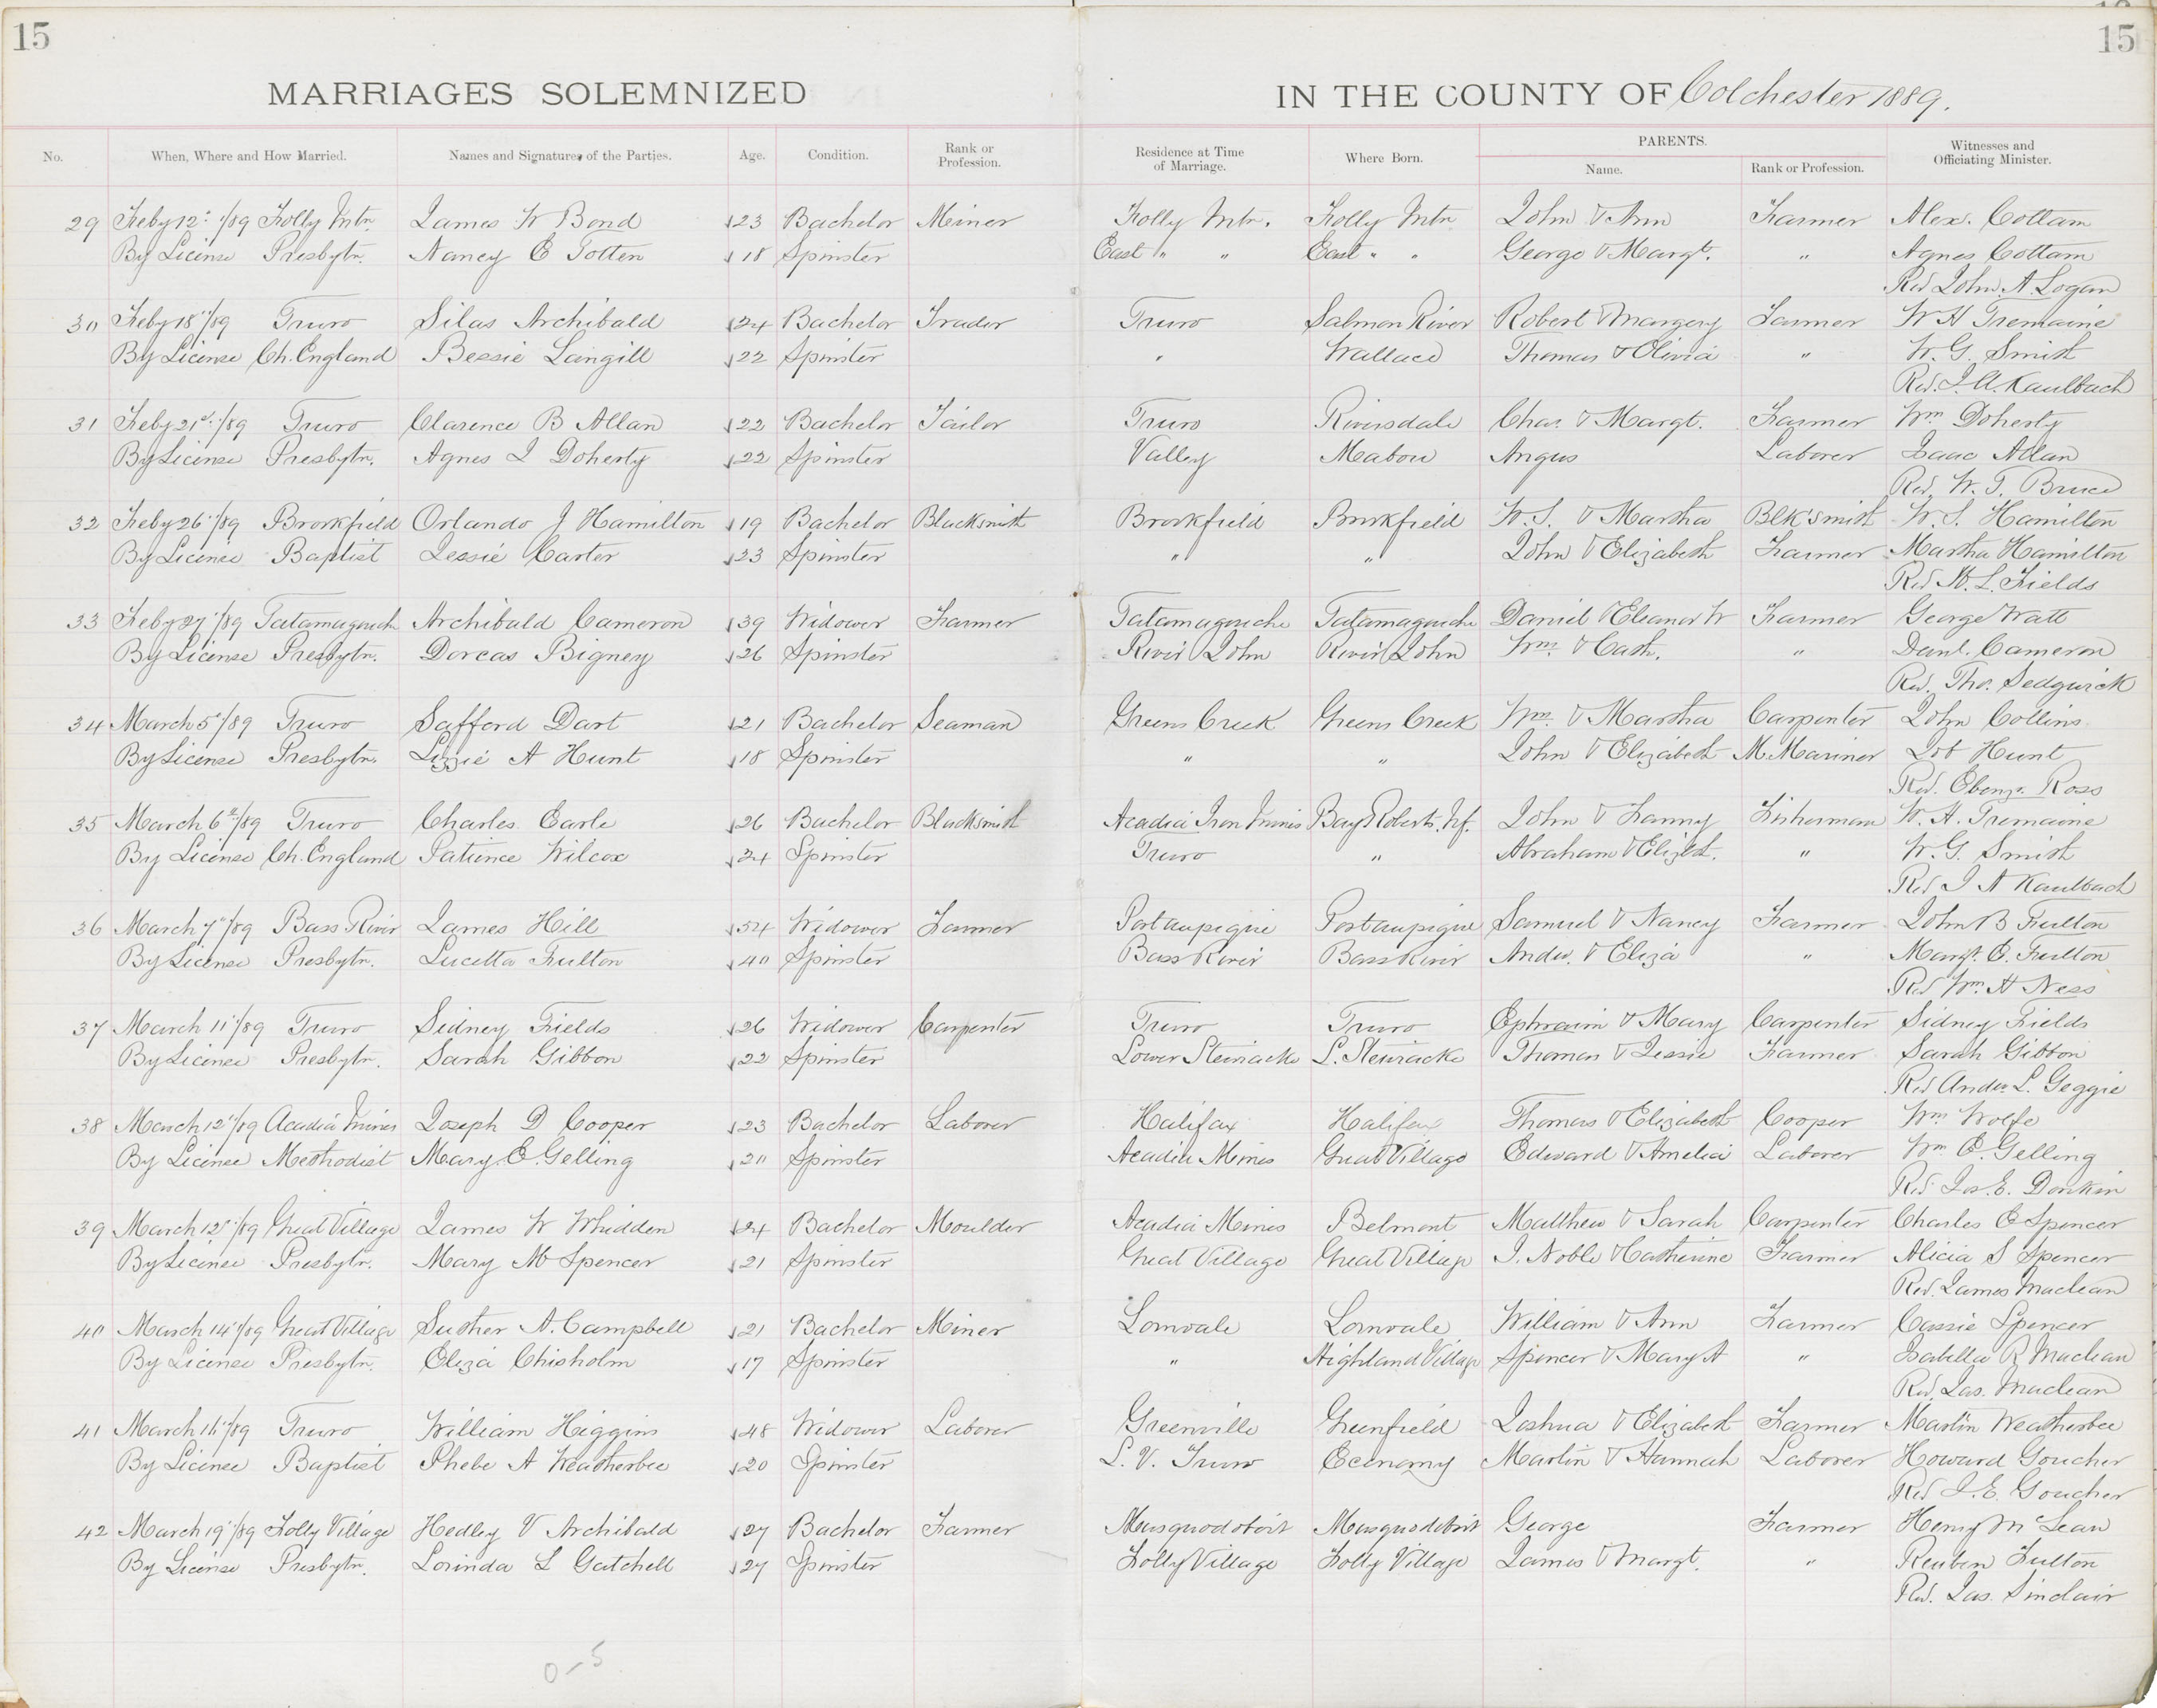 15
15
MARRIAGES SOLEMNIZED
IN THE COUNTY OF Colchester 1889.
No. When, Where and How Married. Names and Signatures of the Parties. Age. Condition. Rank or Profession. Residence at Time of Marriage. Where Born. PARENTS. Name. Rank or Profession. Witnesses and Officiating Minister.
29 Feby 12"/89 Folly Mtn. James W Bond 23 Bachelor Miner Folly Mtn. Folly Mtn John & Ann Farmer Alex. Cottam
By License Presbytn. Nancy E Totten 18 Spinster East " " East " " George & Margt. " Agnes Cottam
Rev John A. Logan
30 Feby 18"/89 Truro Silas Archibald 24 Bachelor Trader Truro Salmon River Robert & Margery Farmer W H Tremaine
By License Ch. England Bessie Langill 22 Spinster " Wallace Thomas & Olivia " W. G. Smith
Rev. J. A. Kaulbach
31 Feby 21st/89 Truro Clarence B Allan 22 Bachelor Tailor Truro Riversdale Chas. & Margt. Farmer Wm Doherty
By License Presbytn. Agnes J Doherty 22 Spinster Valley Mabou Angus Laborer Isaac Allan
Rev. W. T. Bruce
32 Feby 26"/89 Brookfield Orlando J Hamilton 19 Bachelor Blacksmith Brookfield Brookfield W. S. & Martha Blk'smith W. S. Hamilton
By License Baptist Jessie Carter 23 Spinster " " John & Elizabeth Farmer Martha Hamilton
Rev W. L. Fields
33 Feby 27"/89 Tatamagouch Archibald Cameron 39 Widower Farmer Tatamagouche Tatamagouche Daniel & Eleanor W Farmer George Watt
By License Presbytn. Dorcas Bigney 26 Spinster River John River John Wm. & Cath. " Danl. Cameron
Rev. Thos. Sedgwick
34 March 5"/89 Truro Safford Dart 21 Bachelor Seaman Greens Creek Greens Creek Wm. & Martha Carpenter John Collins
By License Presbytn. Lizzie A Hunt 18 Spinster " " John & Elizabeth M. Mariner Job Hunt
Rev. Ebenzr. Ross
35 March 6th/89 Truro Charles Earle 26 Bachelor Blacksmith Acadia Iron Mines Bay Roberts. Nf. John & Fanny Fisherman W. H. Tremaine
By License Ch. England Patience Wilcox 24 Spinster Truro " Abraham & Elizbth. " W. G. Smith
Rev J A Kaulbach
36 March 7"/89 Bass River James Hill 54 Widower Farmer Portaupique Portaupique Samuel & Nancy Farmer John B Fulton
By License Presbytn. Lucetta Fulton 40 Spinster Bass River Bass River Andw. & Eliza " Margt. E. Fulton
Rev Wm. H Ness
37 March 11"/89 Truro Sidney Fields 26 Widower Carpenter Truro Truro Ephraim & Mary Carpenter Sidney Fields
By License Presbytn. Sarah Gibbon 22 Spinster Lower Stewiacke L. Stewiacke Thomas & Jessie Farmer Sarah Gibbon
Rev Andw L. Geggie
38 March 12"/89 Acadia Mines Joseph D Cooper 23 Bachelor Laborer Halifax Halifax Thomas & Elizabeth Cooper Wm Wolfe
By License Methodist Mary E. Gelling 20 Spinster Acadia Mines Great Village Edward & Amelia Laborer Wm E. Gelling
Rev Jos. E. Donkin
39 March 12"/89 Great Village James W Whidden 24 Bachelor Moulder Acadia Mines Belmont Matthew & Sarah Carpenter Charles E Spencer
By License Presbytn. Mary M Spencer 21 Spinster Great Village Great Village J. Noble & Catherine Farmer Alicia S Spencer
Rev. James Maclean
40 March 14"/89 Great Village Suther A. Campbell 21 Bachelor Miner Lornvale Lornvale William & Ann Farmer Cassie Spencer
By License Presbytn. Eliza Chisholm 17 Spinster " Highland Village Spencer & Mary A " Isabella R Maclean
Rev. Jas. Maclean
41 March 16"/89 Truro William Higgins 48 Widower Laborer Greenville Greenfield Joshua & Elizabeth Farmer Martin Weatherbee
By License Baptist Phebe A Weatherbee 20 Spinster L. V. Truro Economy Martin & Hannah Laborer Howard Goucher
Rev J. E. Goucher
42 March 19"/89 Folly Village Hedley V Archibald 27 Bachelor Farmer Musquodoboit Musquodoboit George Farmer Henry McLean
By License Presbytn. Lorinda L Gatchell 27 Spinster Folly Village Folly Village James & Margt. " Reuben Fulton
Rev. Jas. Sinclair
0-5